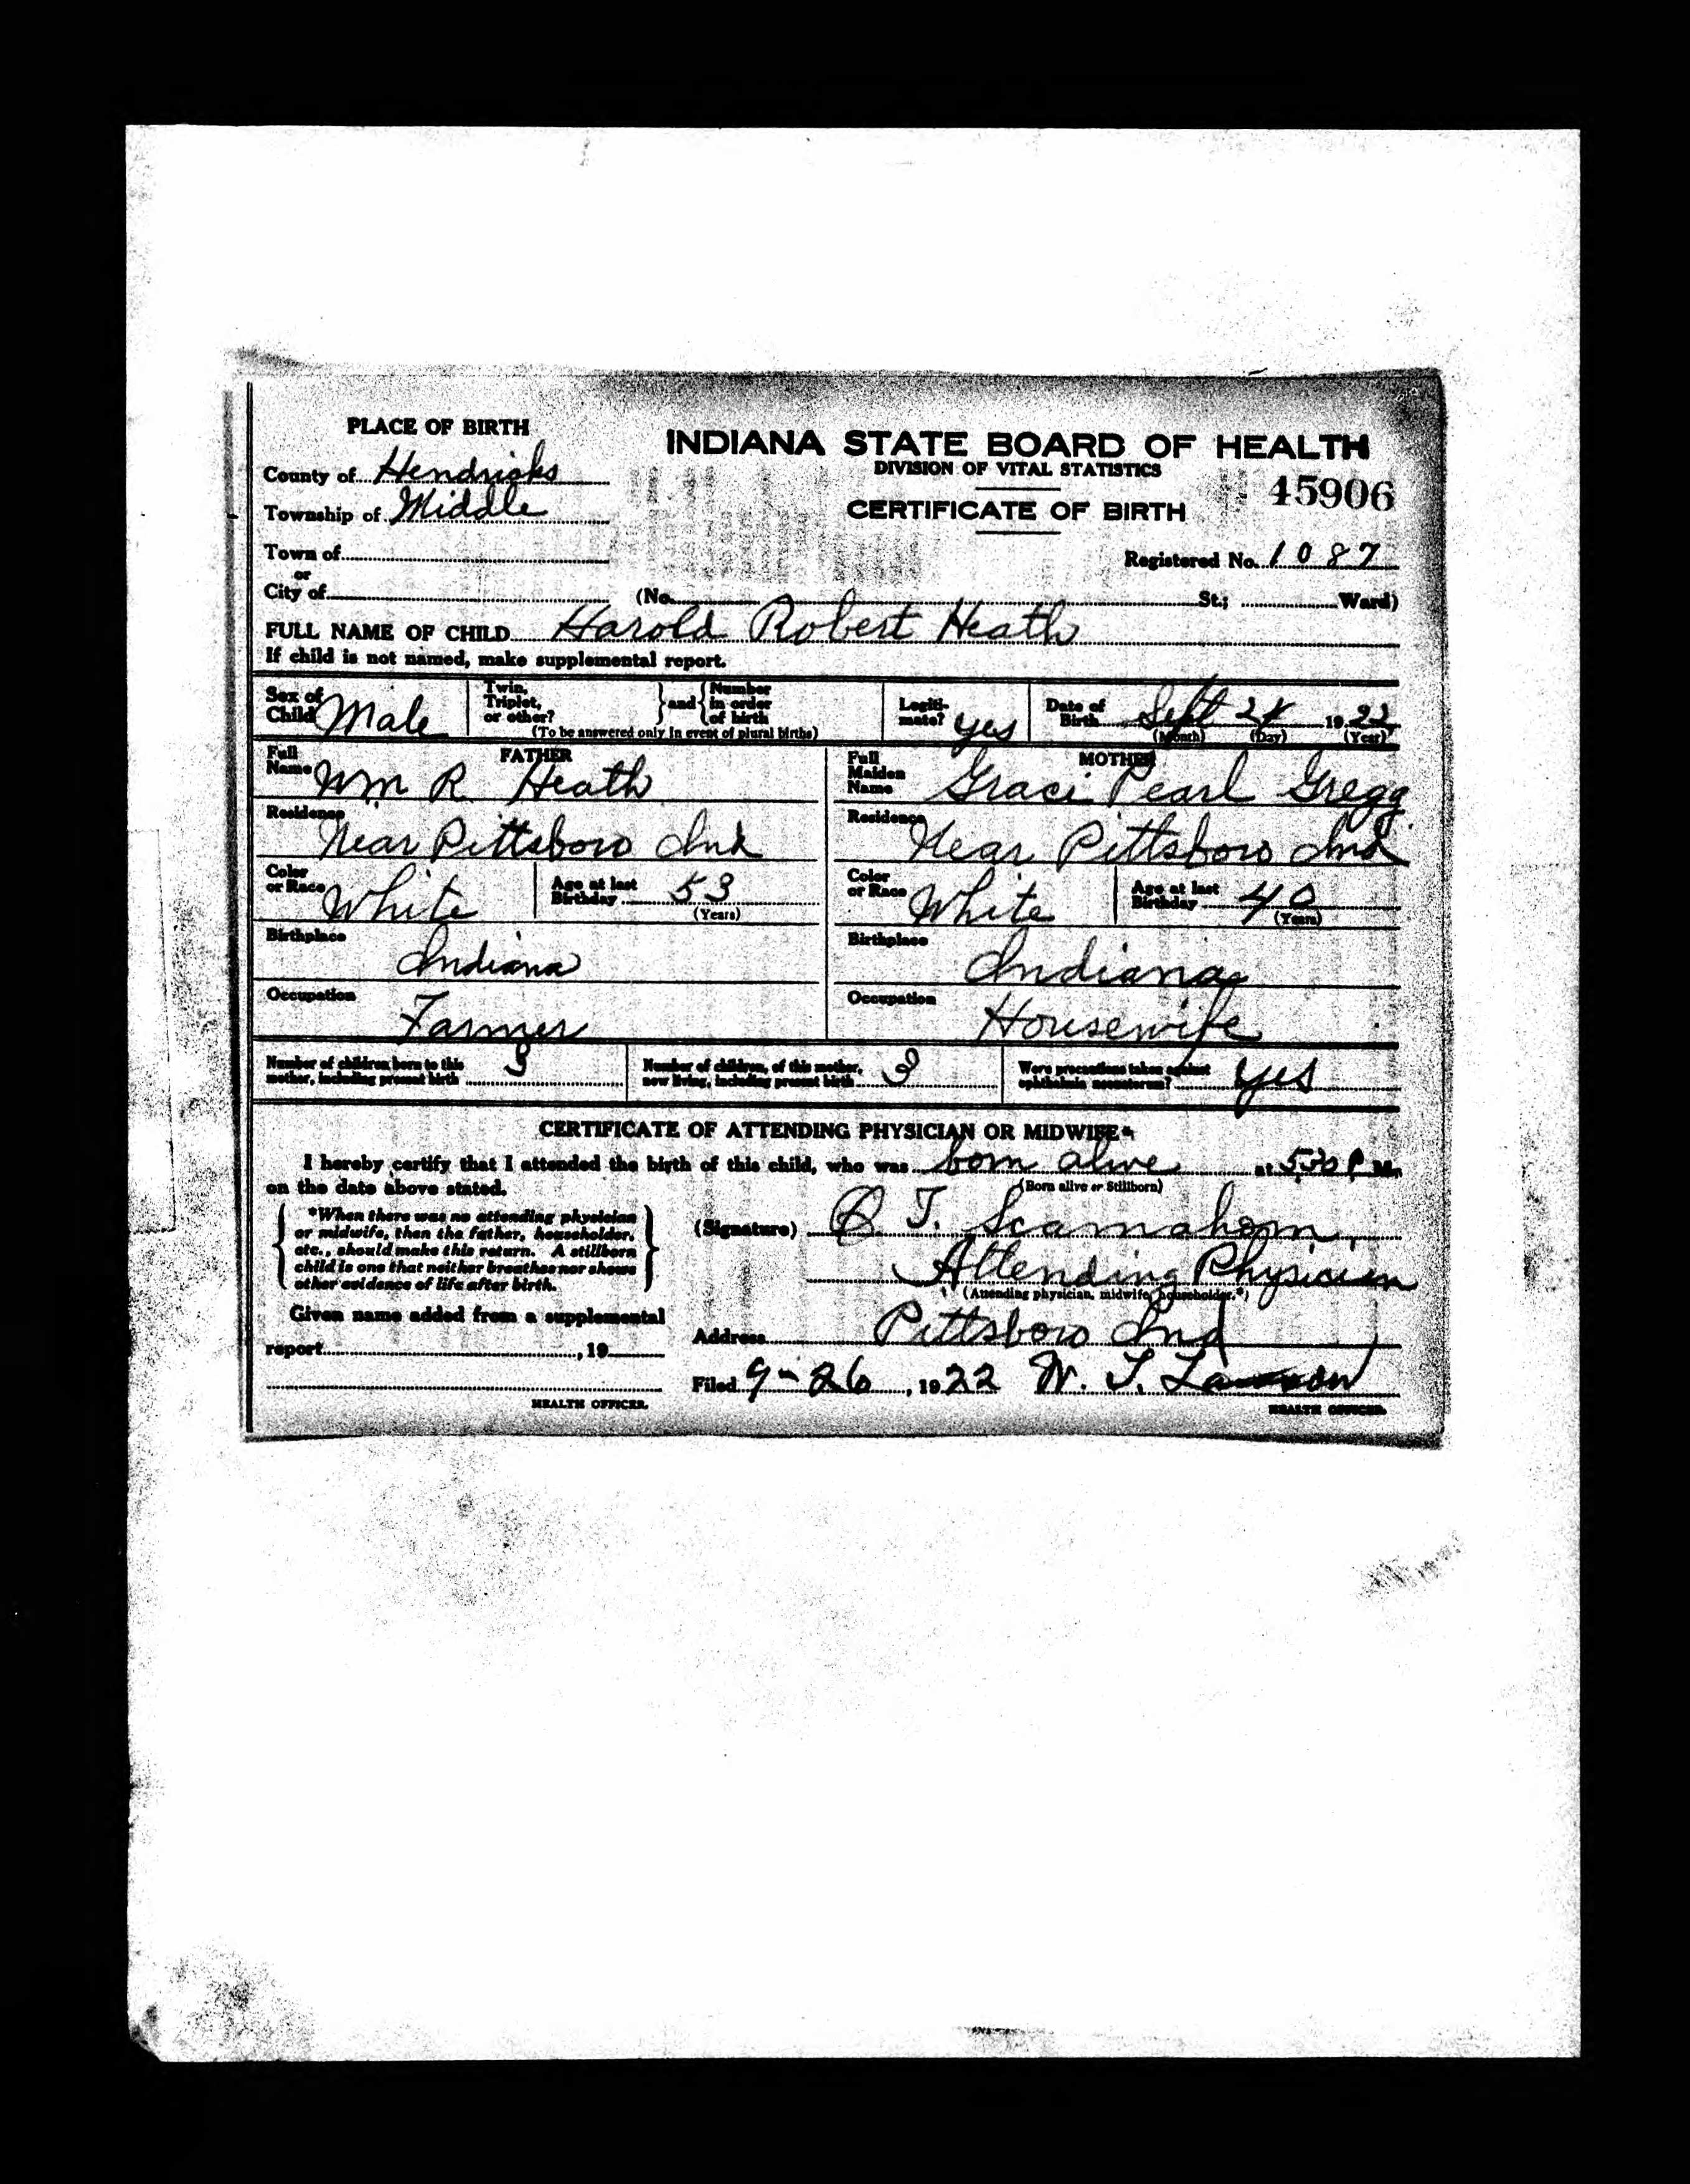 PLACE OF BIRTH
County of Hendricks
Township of Middle
Town of
or
City of
INDIANA STATE BOARD OF HEALTH
DIVISION OF VITAL STATISTICS
45906
CERTIFICATE OF BIRTH
Registered No. 1087
(No. St.; Ward)
FULL NAME OF CHILD Harold Robert Heath
If child is not named, make supplemental report.
Sex of Child Male
Twin, Triplet, or other? } and { Number in order of birth
(To be answered only in event of plural births)
Legiti- mate? yes
Date of Birth Sept 1922
(Month) (Day) (Year)
FATHER
Full Name Wm R Heath
Residence Near Pittsboro Ind
Color or Race White
Age at last Birthday 53
(Years)
Birthplace Indiana
Occupation Farmer
MOTHER
Full Maiden Name Graci Pearl Gregg
Residence Near Pittsboro Ind
Color or Race White
Age at last Birthday 40
(Years)
Birthplace Indiana
Occupation Housewife
Number of children born to this mother, including present birth 3
Number of children, of this mother, now living, including present birth 3
Were precautions taken against ophthalmia neonatorum? yes
CERTIFICATE OF ATTENDING PHYSICIAN OR MIDWIFE*
I hereby certify that I attended the birth of this child, who was born alive at P M.
(Born alive or Stillborn)
on the date above stated.
*When there was no attending physician
or midwife, then the father, householder,
etc., should make this return. A stillborn
child is one that neither breathes nor shows
other evidence of life after birth.
(Signature) O. T. Scamahorn,
Attending Physician
(Attending physician, midwife, householder.*)
Given name added from a supplemental
report , 19
HEALTH OFFICER.
Address Pittsboro Ind
Filed 9-26, 1922 W. T. Lawson
HEALTH OFFICER.